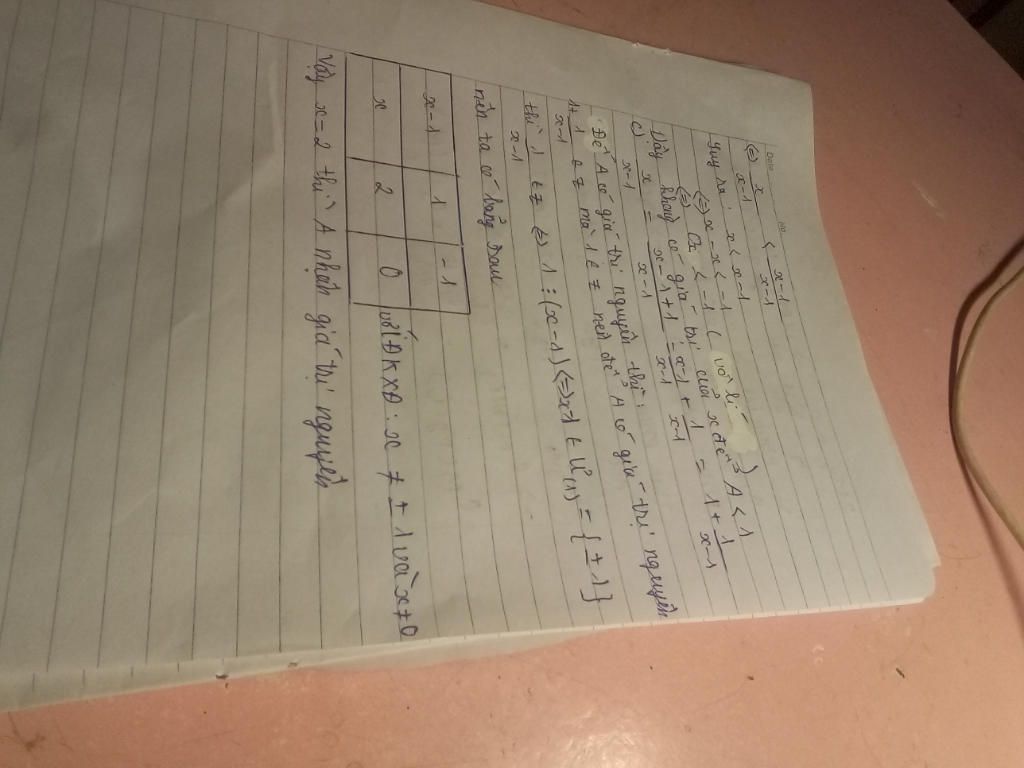 Date No.
(=) x/x-1 < x-1/x-1
suy ra: x < x-1
(=) x-x < -1
(=) 0x < -1 ( vô lí )
Vậy không có giá trị của x để A < 1
c) x/x-1 = x-1+1/x-1 = x-1/x-1 + 1/x-1 = 1 + 1/x-1
Để A có giá trị nguyên thì:
1+1/x-1 ∈ Z mà 1 ∈ Z nên để A có giá trị nguyên
thì 1/x-1 ∈ Z (=) 1 ⋮ (x-1) <=> x-1 ∈ Ư(1) = { ± 1 }
nên ta có bảng sau
x-1 | 1 | -1
x | 2 | 0 với ĐKXĐ: x ≠ ± 1 và x ≠ 0
Vậy x = 2 thì A nhận giá trị nguyên